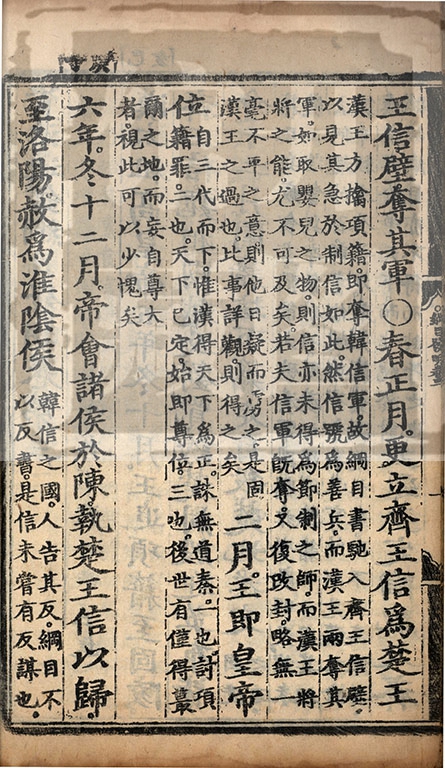 王信壁奪其軍〇春正月更立齊王信爲楚王
漢王方擒項籍即奪韓信軍故綱目書馳入齊王信壁
以見其急於制信如此然信號爲善兵而漢王兩奪其
軍如取嬰兒之物則信亦未得爲節制之師而漢王將
將之能尤不可及矣若夫信軍旣奪又復改封略無一
毫不平之意則他日疑而虜之是固
漢王之過也此事詳觀則得之矣
二月王即皇帝
位
自三代而下惟漢得天下爲正誅無道秦一也討項
籍罪二也天下已定始即尊位三也後世有僅得蕞
爾之地而妄自尊大
者視此可以少愧矣
六年冬十二月帝會諸侯於陳執楚王信以歸
至洛陽赦爲淮陰侯
韓信之國人告其反綱目不
以反書是信未嘗有反謀也